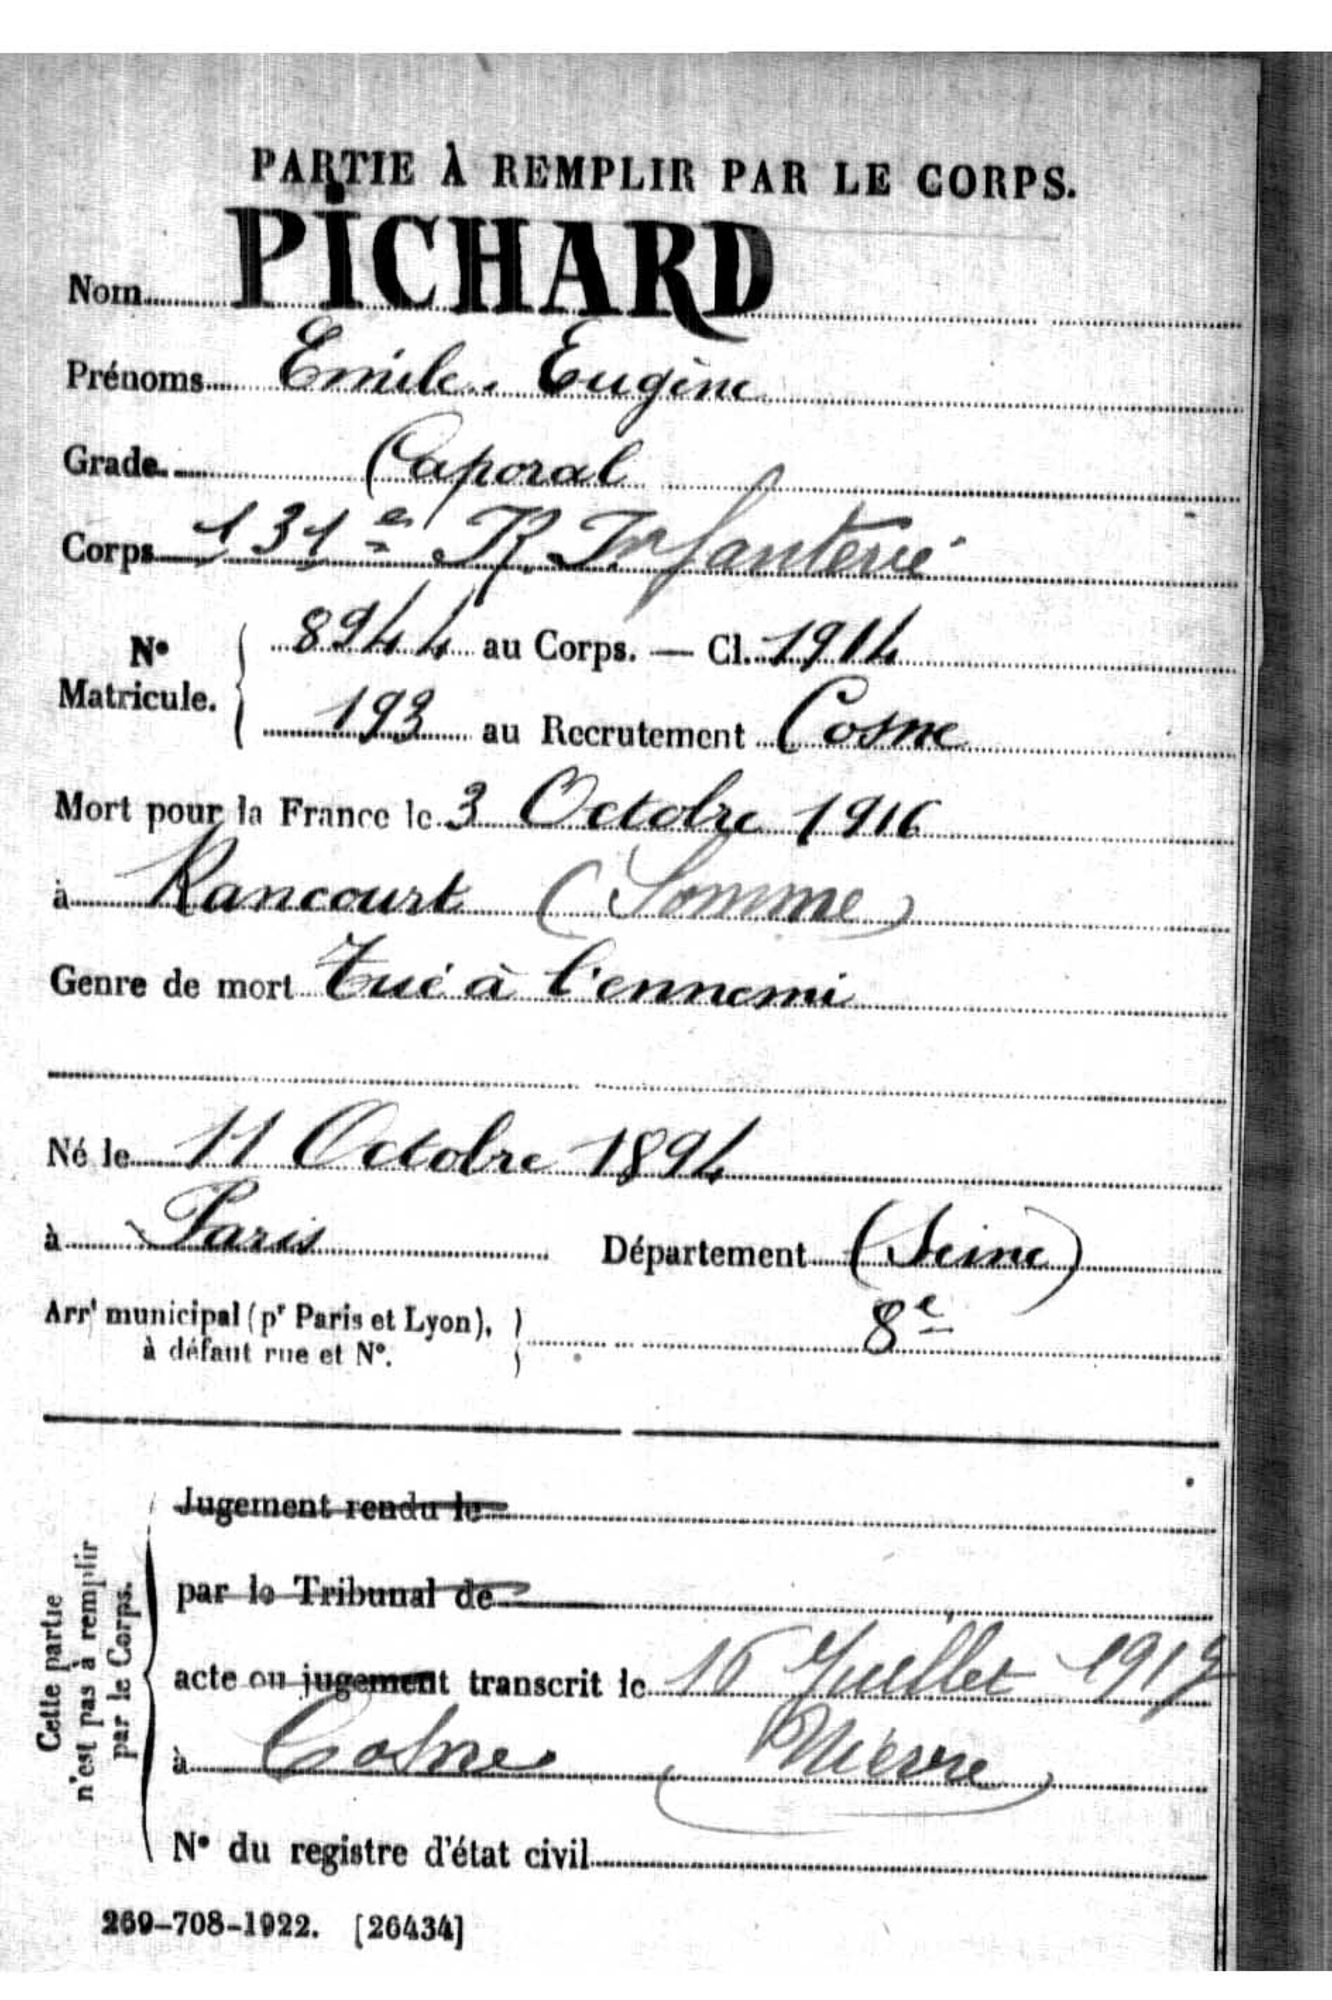 PARTIE À REMPLIR PAR LE CORPS.
Nom PICHARD
Prénoms Emile Eugène
Grade Caporal
Corps 131e R. Infanterie
No Matricule. { 8944 au Corps. — Cl. 1914
193 au Recrutement Cosne
Mort pour la France le 3 Octobre 1916
à Rancourt (Somme)
Genre de mort Tué à l'ennemi
Né le 11 Octobre 1894
à Paris Département (Seine)
Arrt municipal (pr Paris et Lyon), } 8e
à défaut rue et No.
Cette partie n'est pas à remplir par le Corps.
Jugement rendu le
par le Tribunal de
acte ou jugement transcrit le 16 Juillet
à Cosne (Nièvre)
No du registre d'état civil
269-708-1922. [26434]